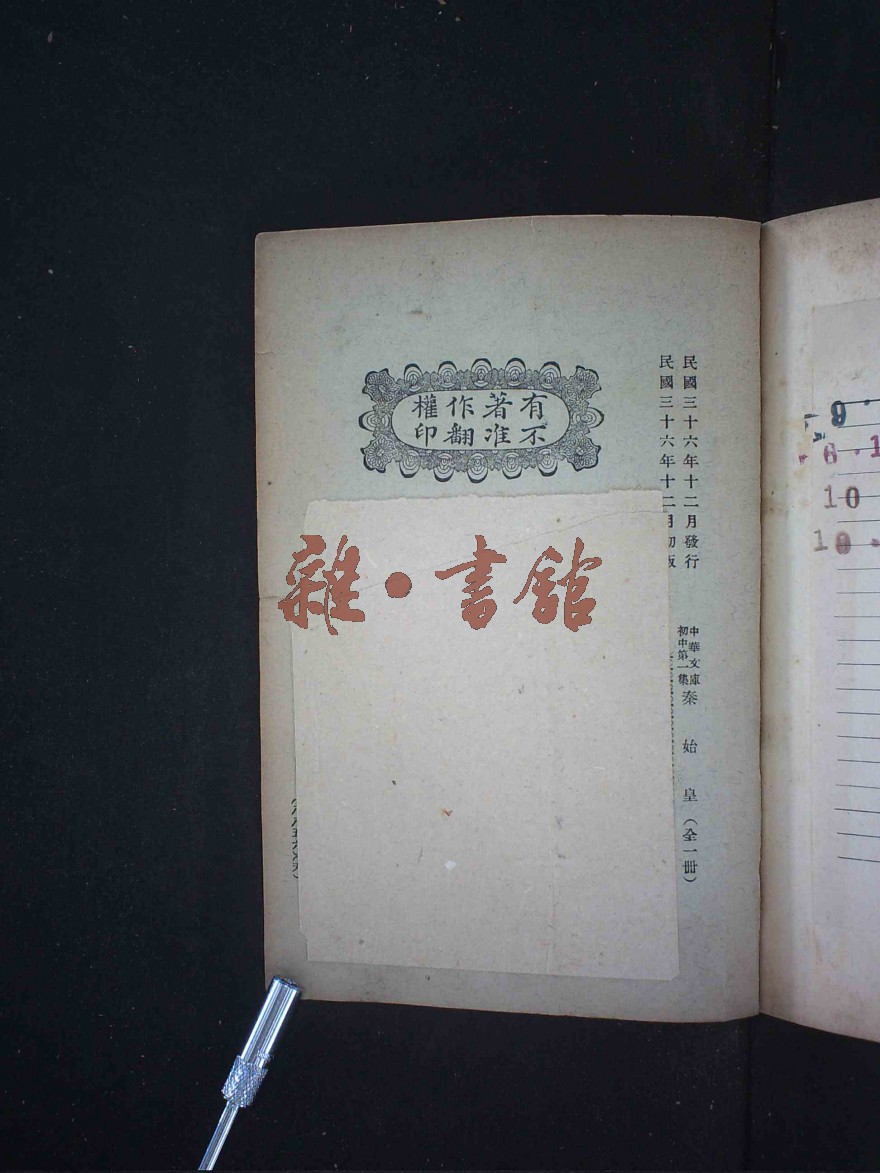 民國三十六年十二月發行
民國三十六年十二月初版
中華文庫
初中第一集
秦始皇（全一冊）
有著作權
不准翻印
雜·書館
9·
6·1
10
10·